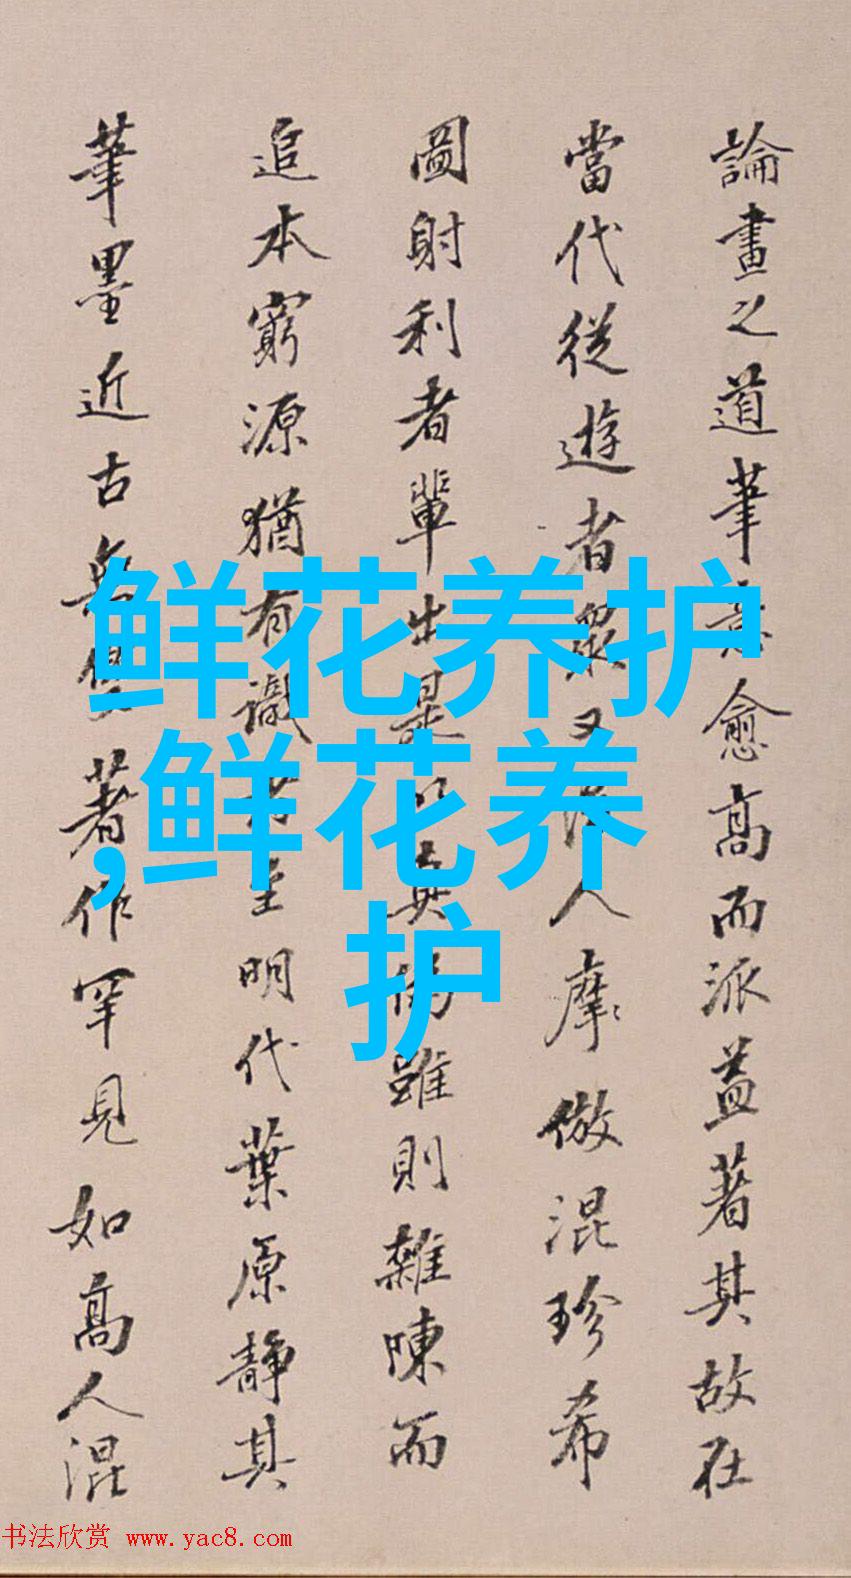 論畫之道筆意愈高而派益著其故在
當代從遊者眾又後人摩倣混珍希
圖射利者輩出是以真偽雖則雜陳而
追本窮源猶有識者至明代葉原靜其
筆墨近古無著作罕見如高人混
鲜花养护
,鲜花养
护
书法欣赏 www.yac8.com